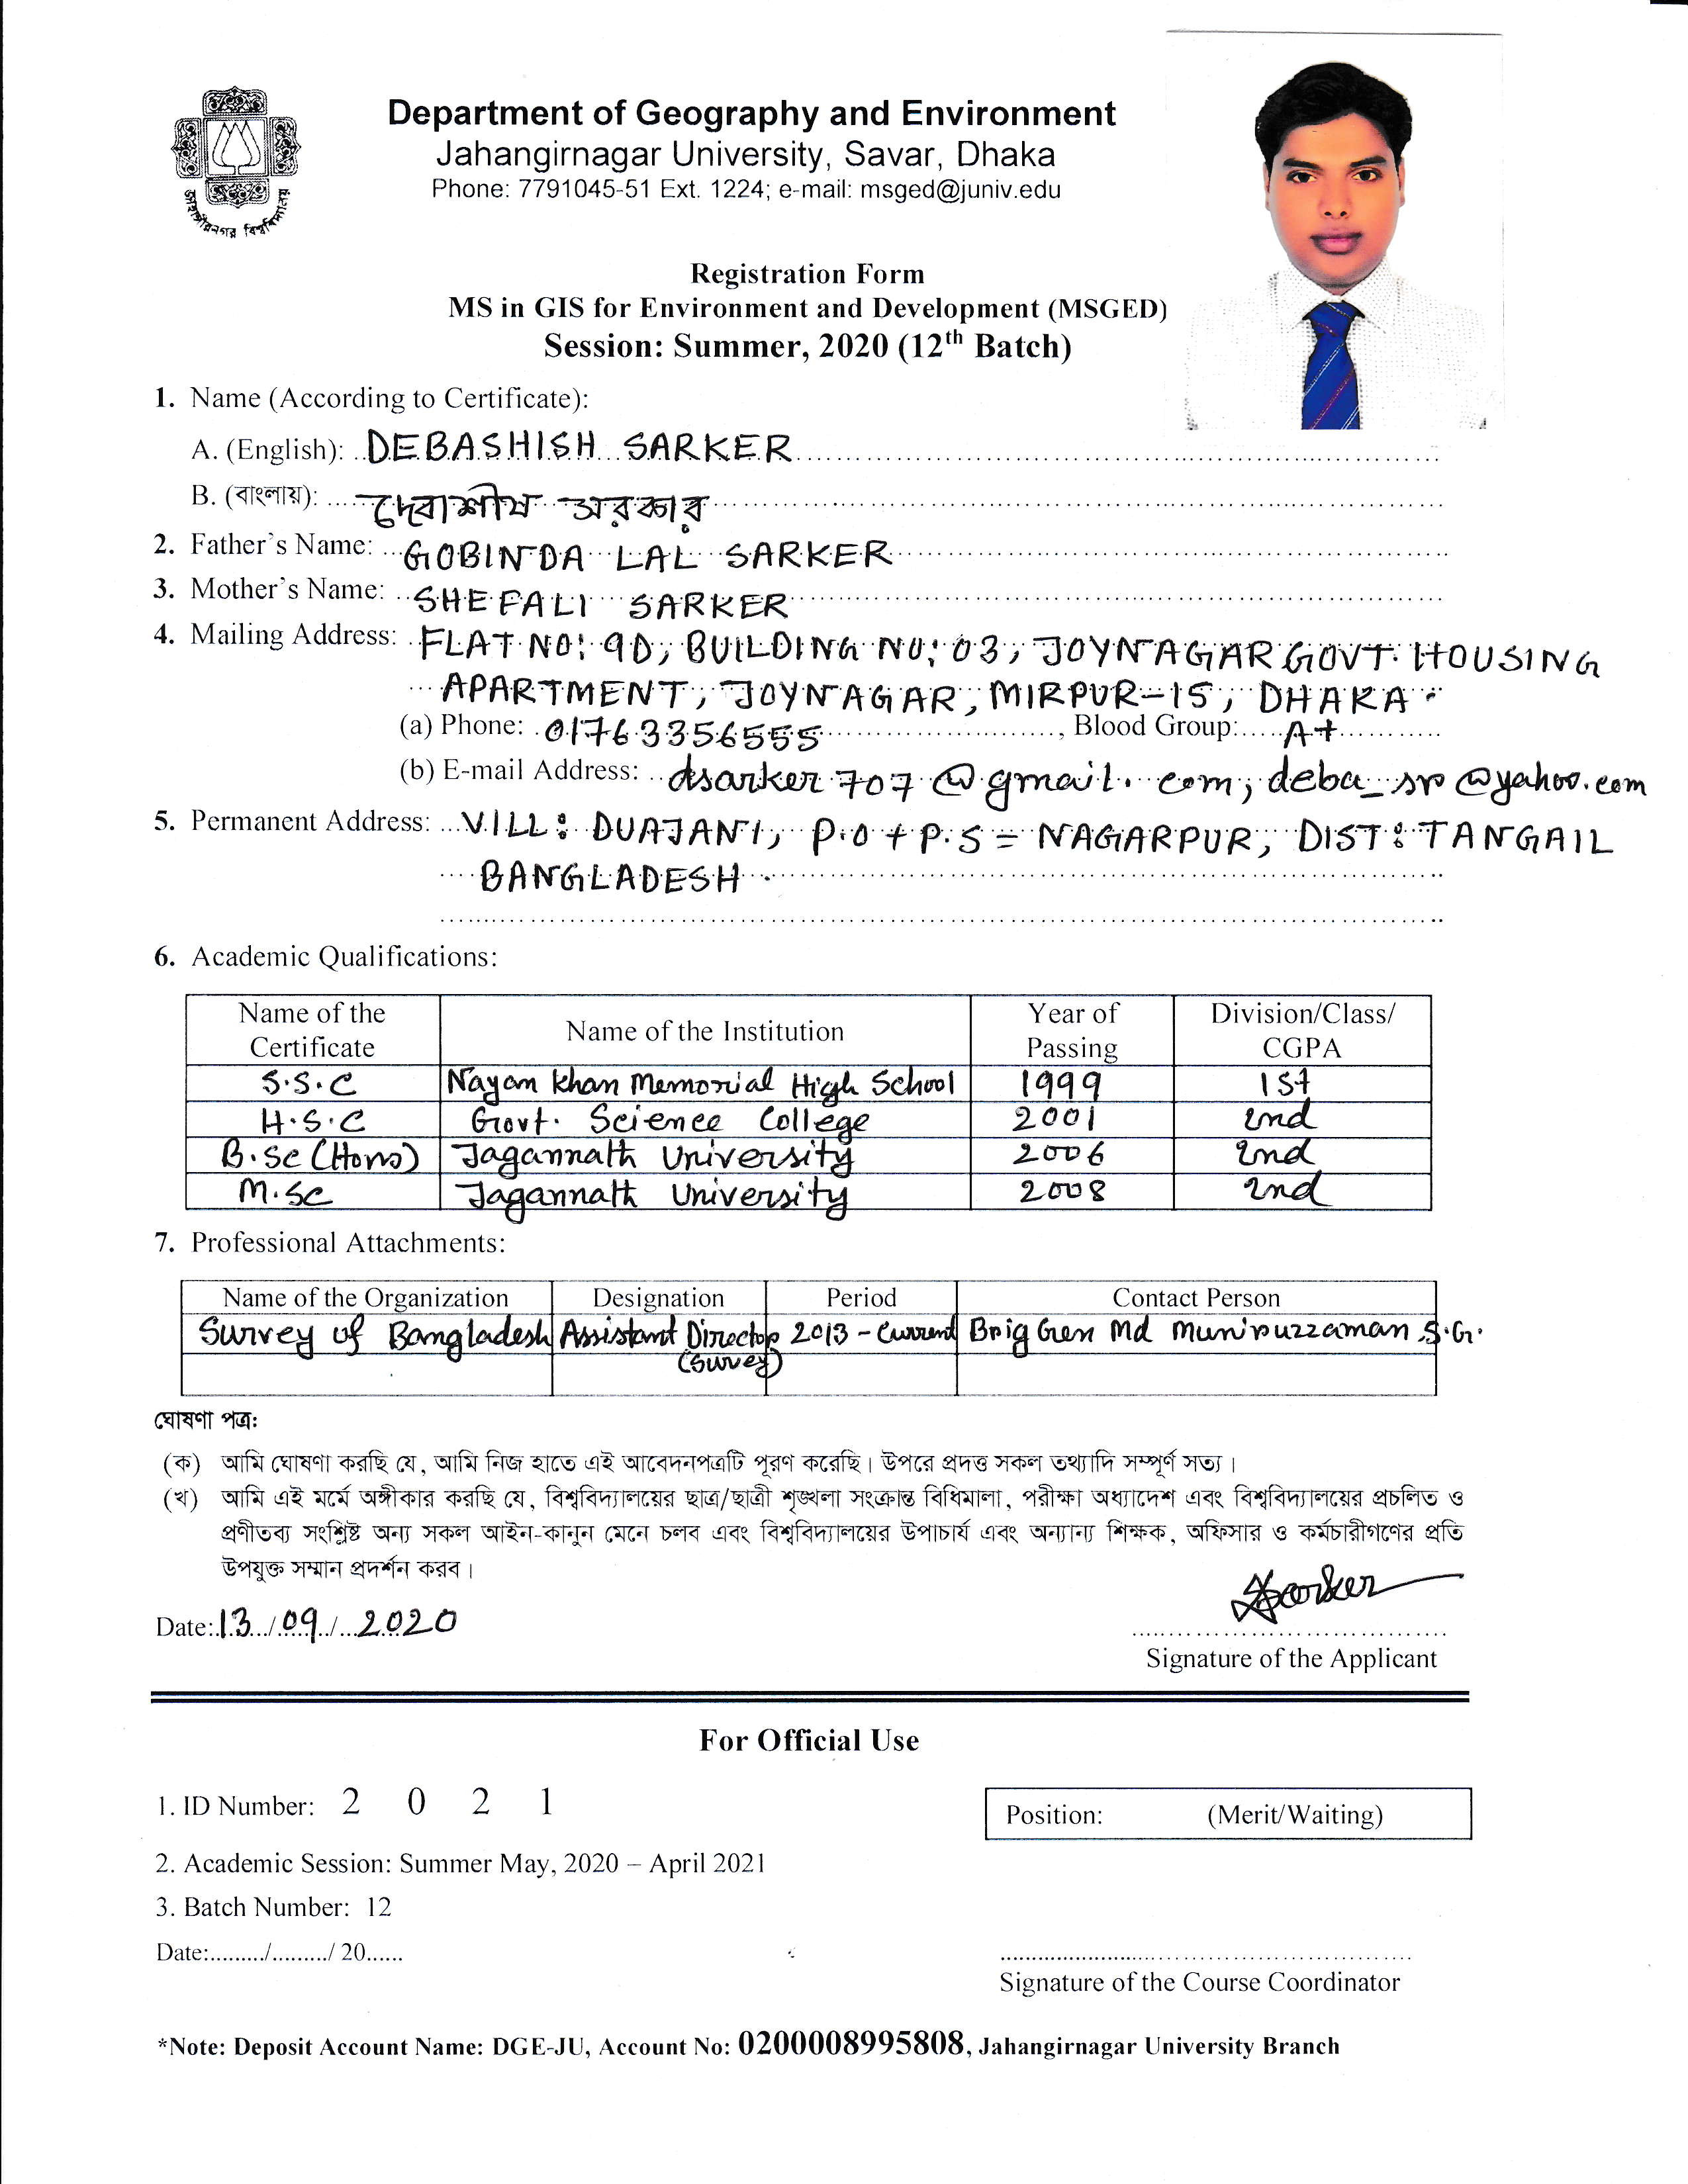 জাহাঙ্গীরনগর বিশ্ববিদ্যালয়
Department of Geography and Environment
Jahangirnagar University, Savar, Dhaka
Phone: 7791045-51 Ext. 1224; e-mail: msged@juniv.edu
Registration Form
MS in GIS for Environment and Development (MSGED)
Session: Summer, 2020 (12th Batch)
1. Name (According to Certificate):
A. (English): DEBASHISH SARKER
B. (বাংলায়): দেবাশীষ সরকার
2. Father's Name: GOBINDA LAL SARKER
3. Mother's Name: SHEFALI SARKER
4. Mailing Address: FLAT NO: 9D, BUILDING NO: 03, JOYNAGAR GOVT. HOUSING
APARTMENT, JOYNAGAR, MIRPUR-15, DHAKA.
(a) Phone: 01763356555, Blood Group: A+
(b) E-mail Address: dsarker707@gmail.com, deba_sr@yahoo.com
5. Permanent Address: VILL: DUAJANI, P.O + P.S = NAGARPUR, DIST: TANGAIL
BANGLADESH.
6. Academic Qualifications:
Name of the Certificate Name of the Institution Year of Passing Division/Class/ CGPA
S.S.C Nayan Khan Memorial High School 1999 1st
H.S.C Govt. Science College 2001 2nd
B.Sc (Hons) Jagannath University 2006 2nd
M.Sc Jagannath University 2008 2nd
7. Professional Attachments:
Name of the Organization Designation Period Contact Person
Survey of Bangladesh Assistant Director 2013 - Current Brig Gen Md Muniruzzaman S.G.
(Survey)
ঘোষণা পত্র:
(ক) আমি ঘোষণা করছি যে, আমি নিজ হাতে এই আবেদনপত্রটি পূরণ করেছি। উপরে প্রদত্ত সকল তথ্যাদি সম্পূর্ণ সত্য।
(খ) আমি এই মর্মে অঙ্গীকার করছি যে, বিশ্ববিদ্যালয়ের ছাত্র/ছাত্রী শৃঙ্খলা সংক্রান্ত বিধিমালা, পরীক্ষা অধ্যাদেশ এবং বিশ্ববিদ্যালয়ের প্রচলিত ও
প্রণীতব্য সংশ্লিষ্ট অন্য সকল আইন-কানুন মেনে চলব এবং বিশ্ববিদ্যালয়ের উপাচার্য এবং অন্যান্য শিক্ষক, অফিসার ও কর্মচারীগণের প্রতি
উপযুক্ত সম্মান প্রদর্শন করব।
DSarker
Date: 13/09/2020
Signature of the Applicant
For Official Use
1. ID Number: 2 0 2 1
Position: (Merit/Waiting)
2. Academic Session: Summer May, 2020 – April 2021
3. Batch Number: 12
Date:........./........./ 20......
Signature of the Course Coordinator
*Note: Deposit Account Name: DGE-JU, Account No: 0200008995808, Jahangirnagar University Branch